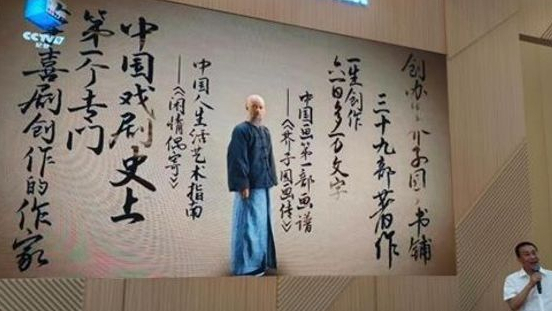 创办“芥子园”书铺
三十九部著作
一生创作
六百多万文字
中国画第一部画谱
——《芥子园画传》
中国人生活艺术指南
——《闲情偶寄》
中国戏剧史上
第一个专门
事喜剧创作的作家
CCTV